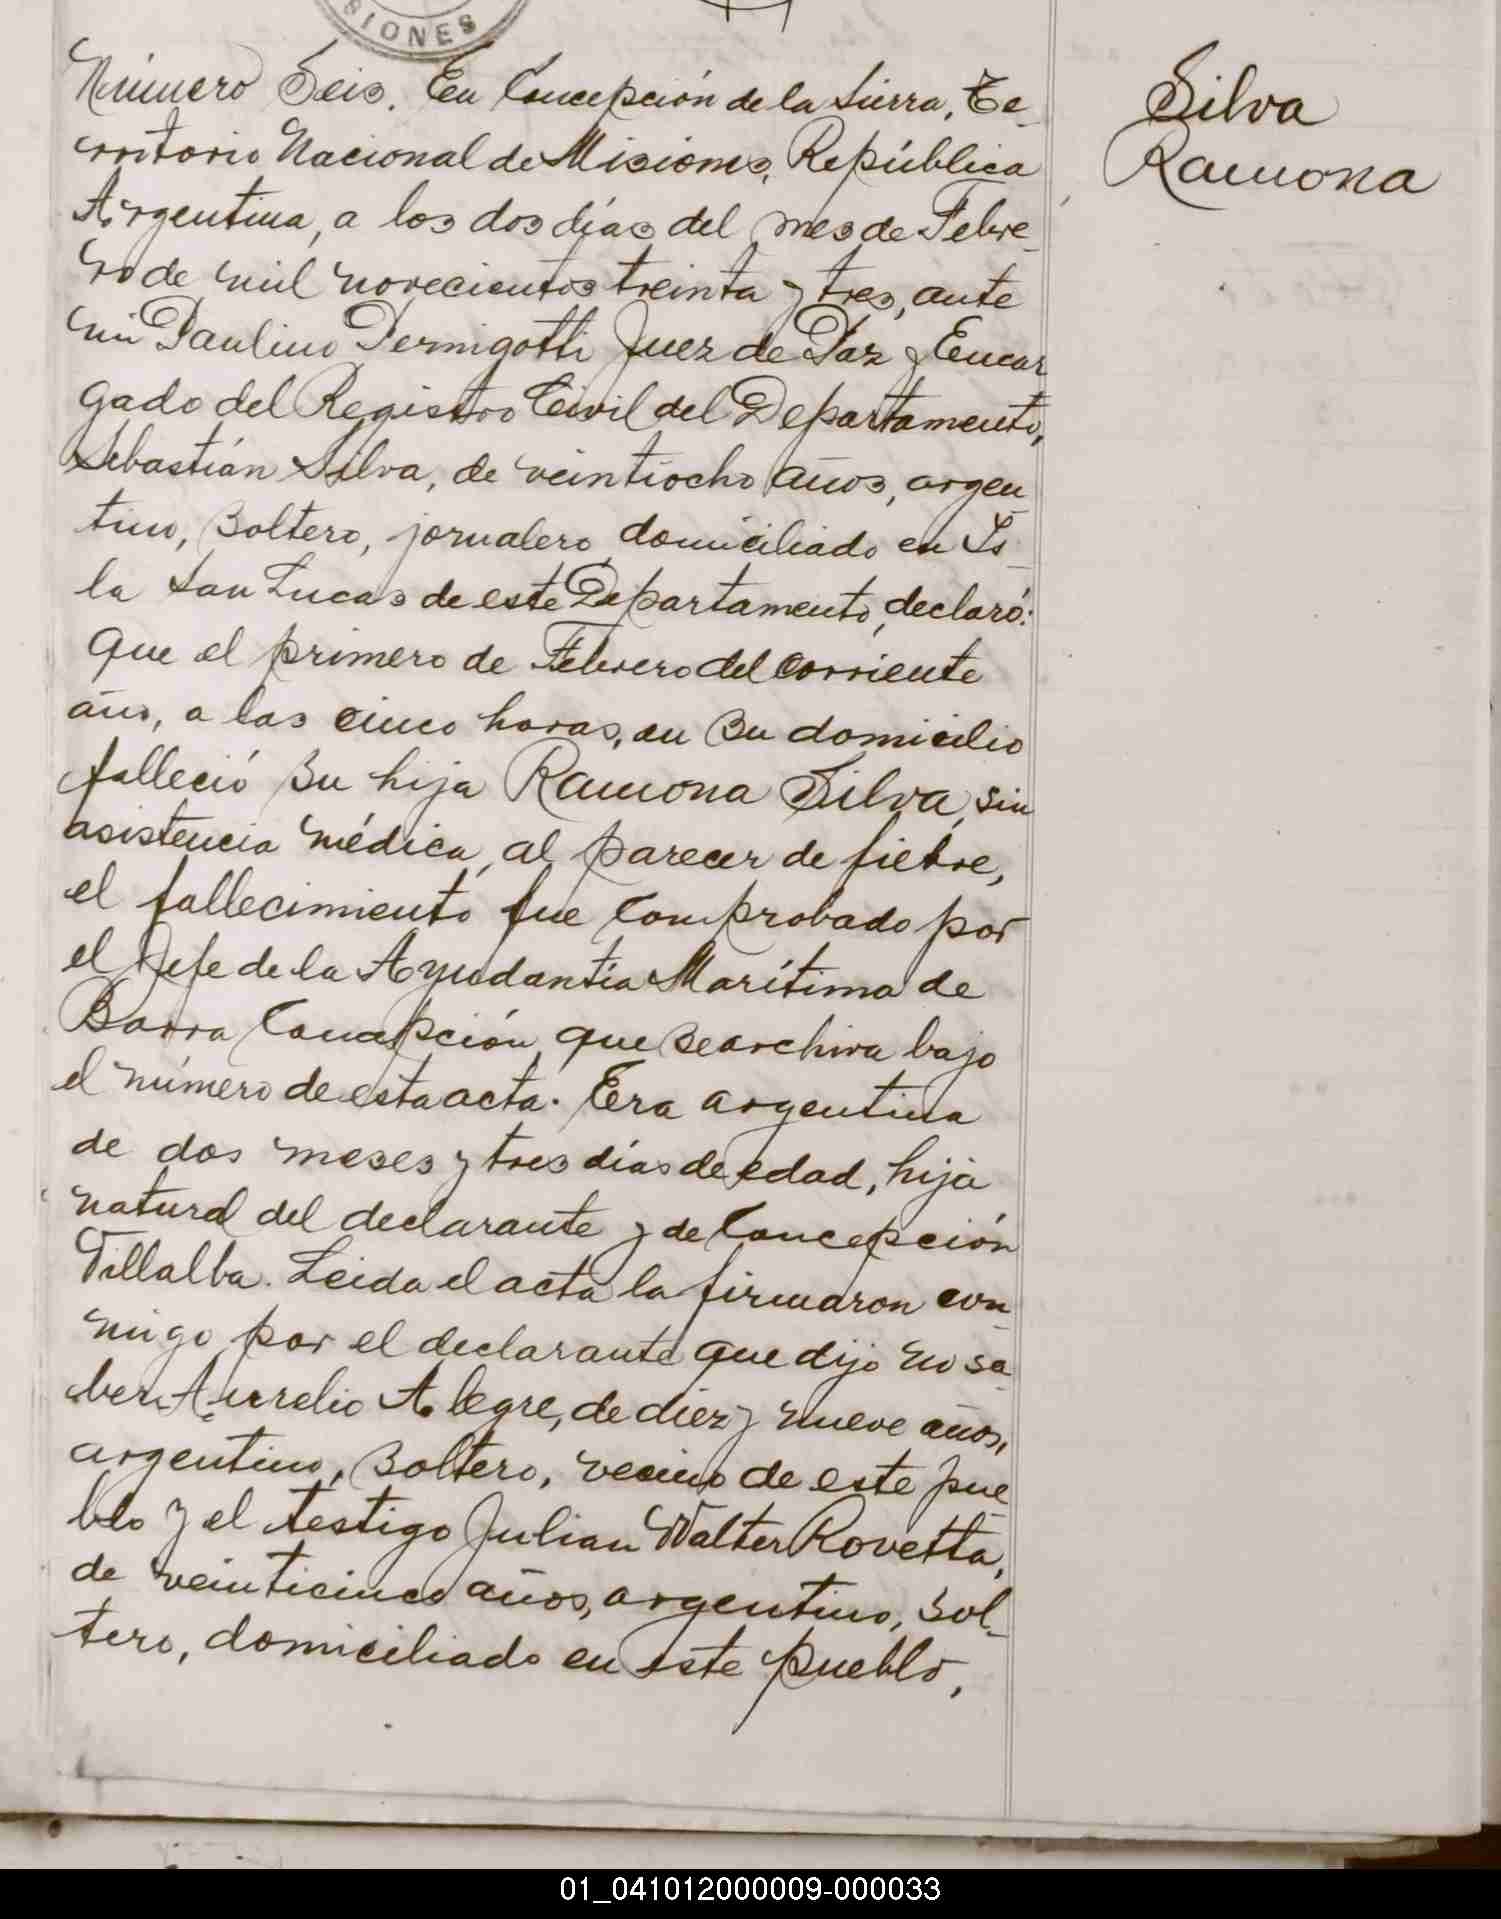 SIONES
Número Seis. En Concepción de la Sierra, Te-
rritorio Nacional de Misiones, República
Argentina, a los dos días del mes de Febre-
ro de mil novecientos treinta y tres, ante
mi Paulino Dermigotti Juez de Paz y Encar
gado del Registro Civil del Departamento,
Sebastián Silva, de veintiocho años, argen
tino, soltero, jornalero domiciliado en Is-
la San Lucas de este Departamento, declaró:
Que el primero de Febrero del corriente
año, a las cinco horas, en su domicilio
falleció su hija Ramona Silva, sin
asistencia médica, al parecer de fiebre,
el fallecimiento fue comprobado por
el Jefe de la Ayudantía Marítima de
Barra Concepción que se archiva bajo
el número de esta acta. Era argentina
de dos meses y tres días de edad, hija
natural del declarante y de Concepción
Villalba. Leida el acta la firmaron con-
migo por el declarante que dijo no sa-
ber Aurelio Alegre, de diez y nueve años,
argentino, soltero, vecino de este pue-
blo y el testigo Julian Walter Rovetta,
de veinticinco años, argentino, sol-
tero, domiciliado en este pueblo,
Silva
Ramona
01_041012000009-000033